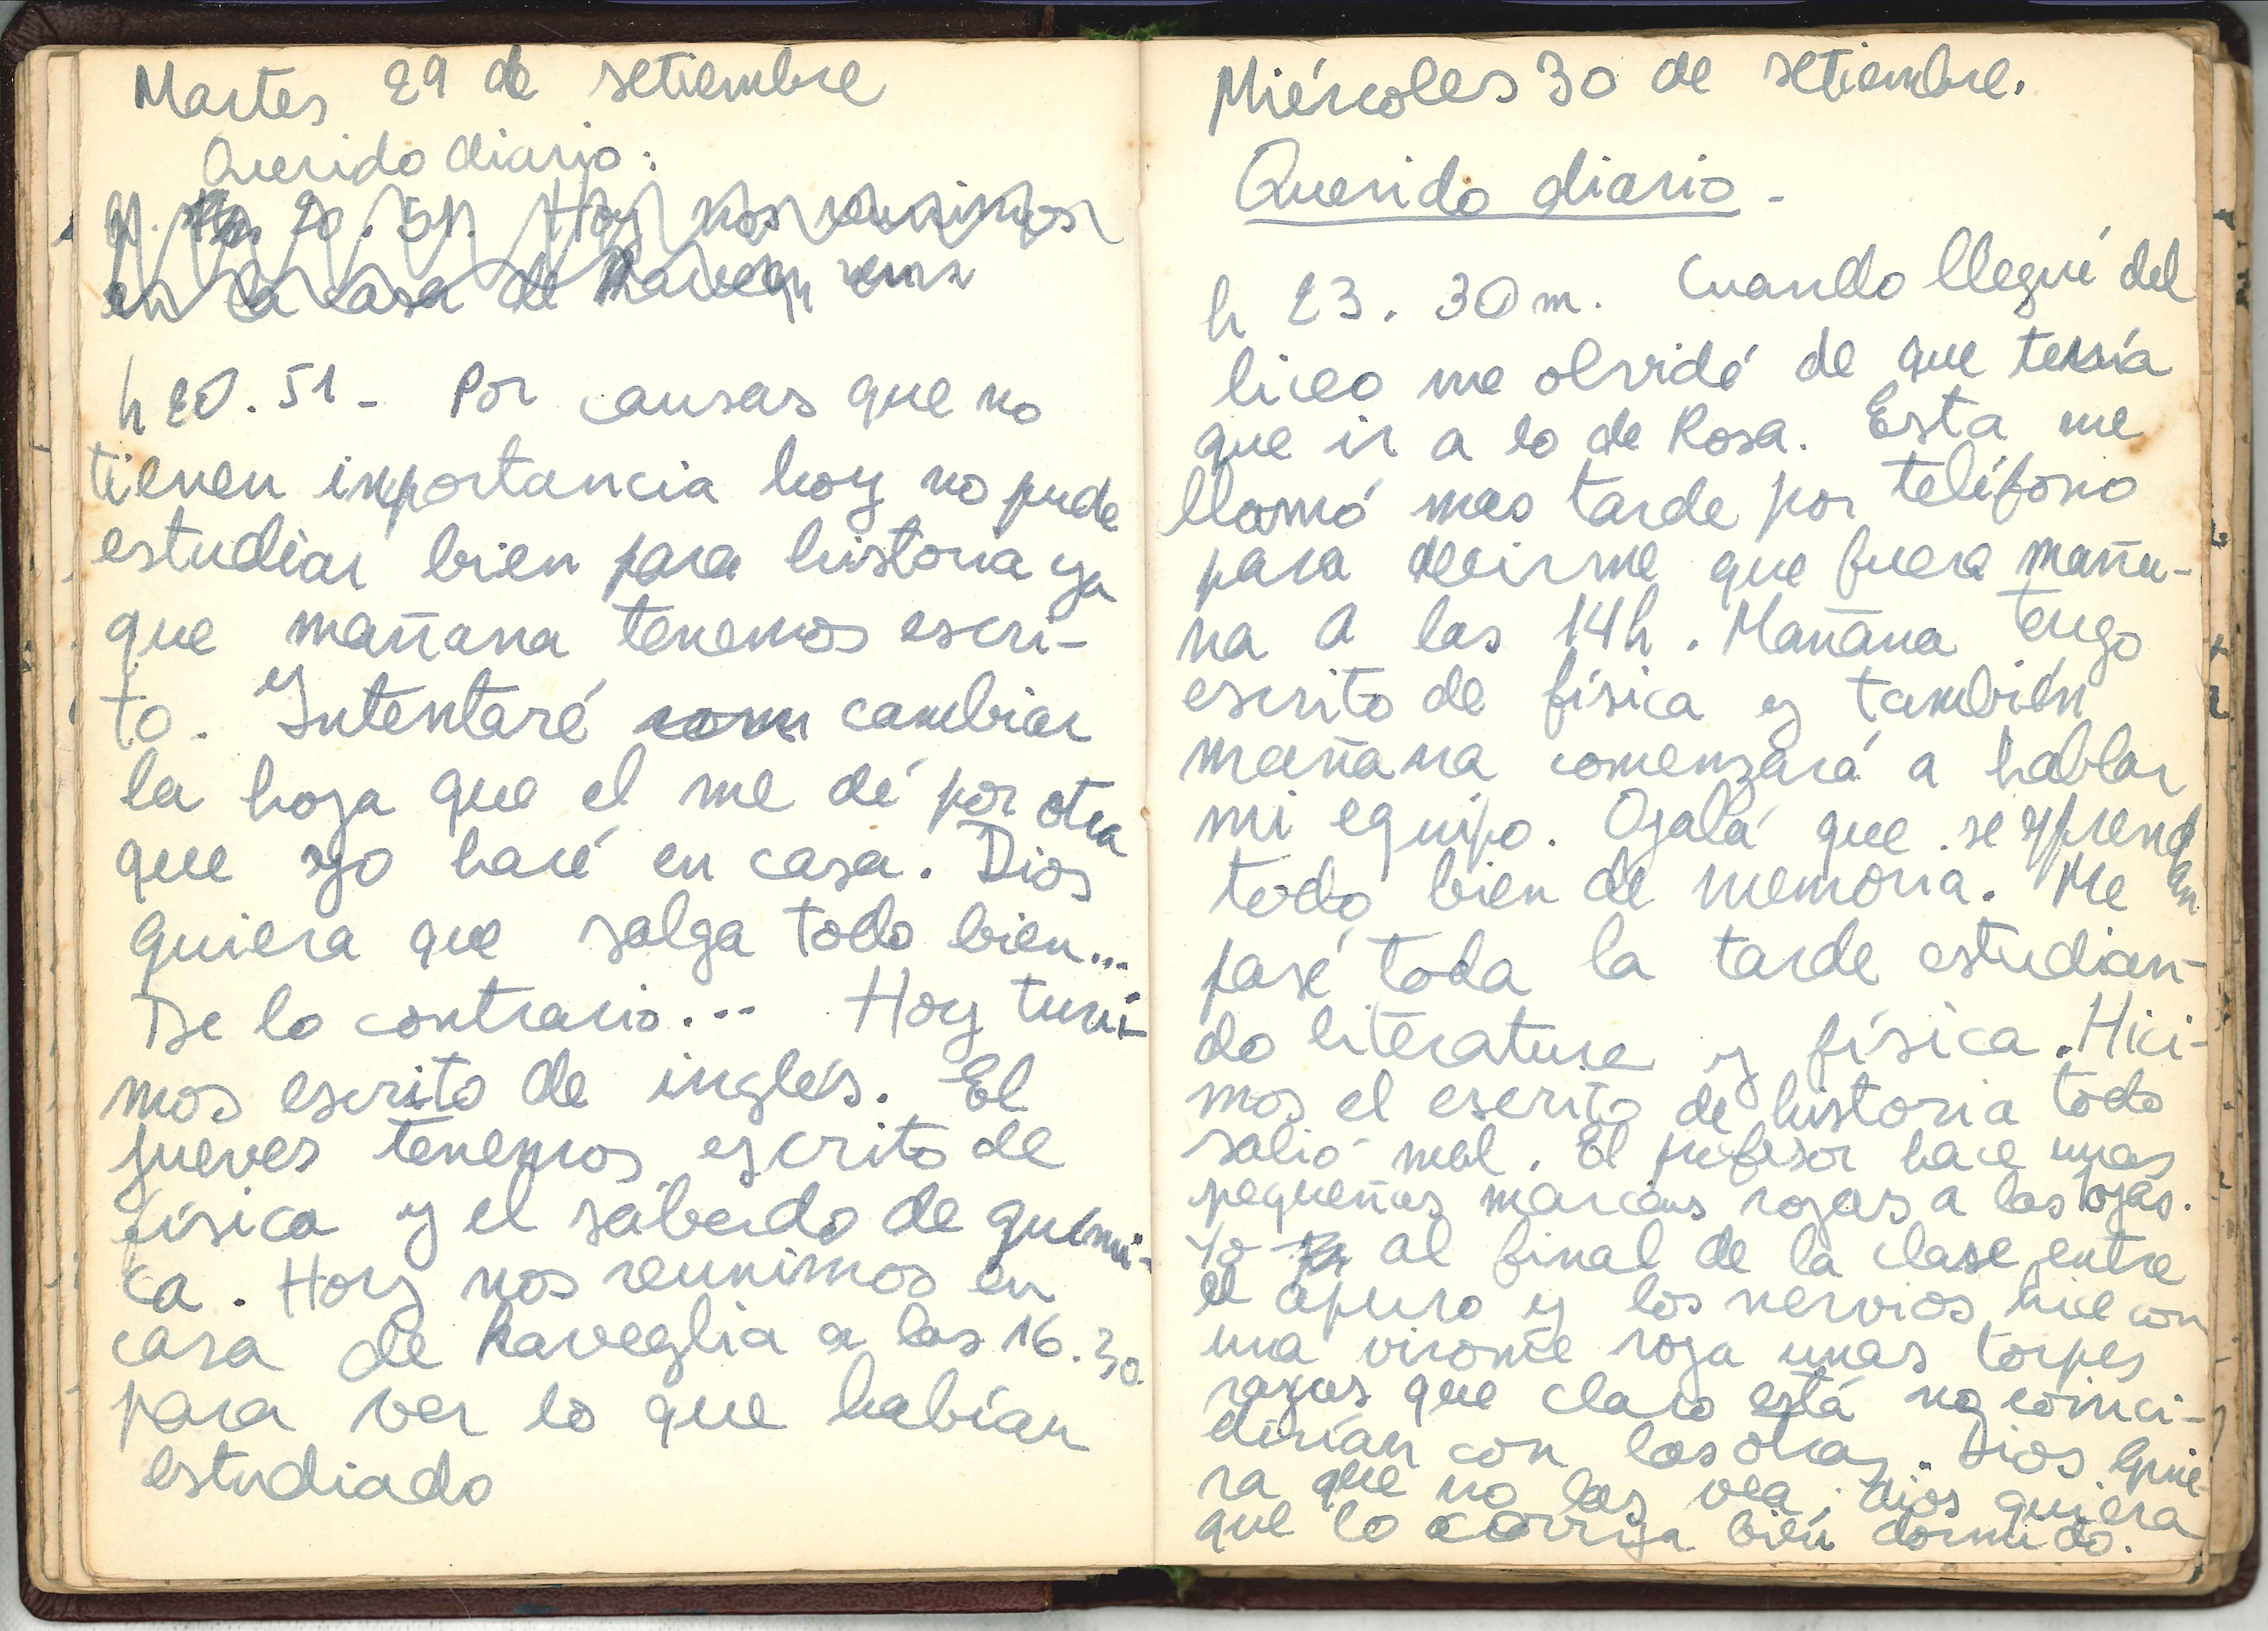 Martes 29 de setiembre
Querido diario:
20.51. Hoy nos reunimos
en la casa de
h 20.51- Por causas que no
tienen importancia hoy no pude
estudiar bien para historia ya
que mañana tenemos escri-
to. y Intentaré cambiar
la hoja que el me dé por otra
que yo haré en casa. Dios
quiera que salga todo bien...
De lo contrario... Hoy tuvi-
mos escrito de inglés. El
jueves tenemos escrito de
física y el sábado de quími-
ca. Hoy nos reunimos en
casa de Raveglia a las 16.30
para ver lo que habían
estudiado
Miércoles 30 de setiembre.
Querido diario-
h 23. 30m. Cuando llegué del
liceo me olvidé de que tenía
que ir a lo de Rosa. Esta me
llamó mas tarde por teléfono
para decirme que fuera maña-
na a las 14h. Mañana tengo
escrito de física y también
mañana comenzará a hablar
mi equipo. Ojalá que se aprendan
todo bien de memoria. Me
pasé toda la tarde estudian-
do literatura y física. Hici-
mos el escrito de historia todo
salió mal. El profesor hace unas
pequeñas marcas rojas a las hojas.
Yo al final de la clase entre
el apuro y los nervios hice con
una virome roja unas torpes
rayas que claro está no coinci-
dirían con las otras. Dios quie-
ra que no las vea; dios quiera
que lo corrija bien dormido.